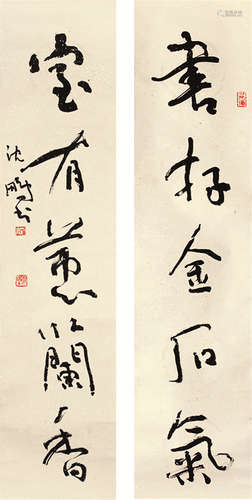 書好金石氣
室有蕙蘭香
沈鵬書